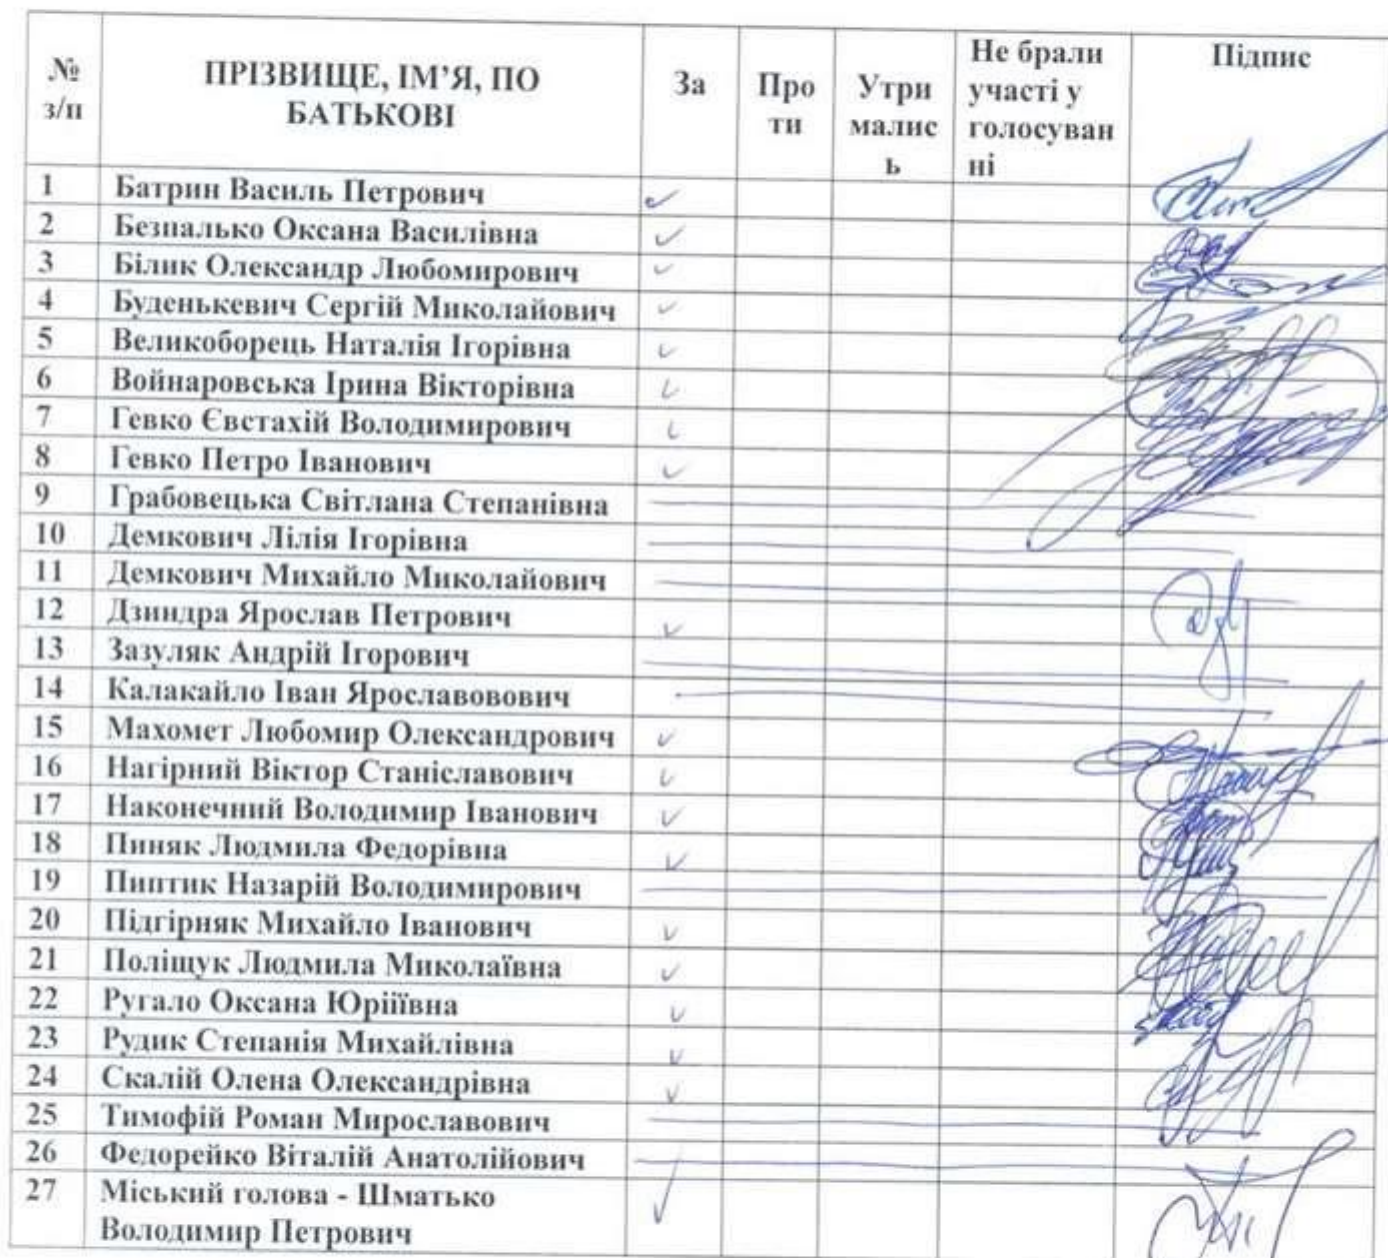 № з/п
ПРІЗВИЩЕ, ІМ’Я, ПО БАТЬКОВІ
За
Про ти
Утри малис ь
Не брали участі у голосуван ні
Підпис
1 Батрин Василь Петрович ✓
2 Безпалько Оксана Василівна ✓
3 Білик Олександр Любомирович ✓
4 Буденькевич Сергій Миколайович ✓
5 Великоборець Наталія Ігорівна ✓
6 Войнаровська Ірина Вікторівна ✓
7 Гевко Євстахій Володимирович ✓
8 Гевко Петро Іванович ✓
9 Грабовецька Світлана Степанівна
10 Демкович Лілія Ігорівна
11 Демкович Михайло Миколайович
12 Дзиндра Ярослав Петрович ✓
13 Зазуляк Андрій Ігорович
14 Калакайло Іван Ярославовович
15 Махомет Любомир Олександрович ✓
16 Нагірний Віктор Станіславович ✓
17 Наконечний Володимир Іванович ✓
18 Пиняк Людмила Федорівна ✓
19 Пиптик Назарій Володимирович
20 Підгірняк Михайло Іванович ✓
21 Поліщук Людмила Миколаївна ✓
22 Ругало Оксана Юріїївна ✓
23 Рудик Степанія Михайлівна ✓
24 Скалій Олена Олександрівна ✓
25 Тимофій Роман Мирославович
26 Федорейко Віталій Анатолійович
27 Міський голова - Шматько ✓
Володимир Петрович